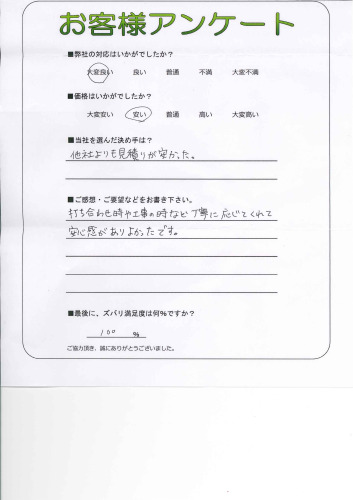 お客様アンケート
■弊社の対応はいかがでしたか？
大変良い 良い 普通 不満 大変不満
■価格はいかがでしたか？
大変安い 安い 普通 高い 大変高い
■当社を選んだ決め手は？
他社よりも見積りが安かった。
■ご感想・ご要望などをお書き下さい。
打ち合わせ時や工事の時など丁寧に応じてくれて
安心感がありよかったです。
■最後に、ズバリ満足度は何％ですか？
100 %
ご協力頂き、誠にありがとうございました。